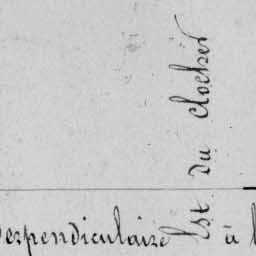 Est du clocher
perpendiculaire à l